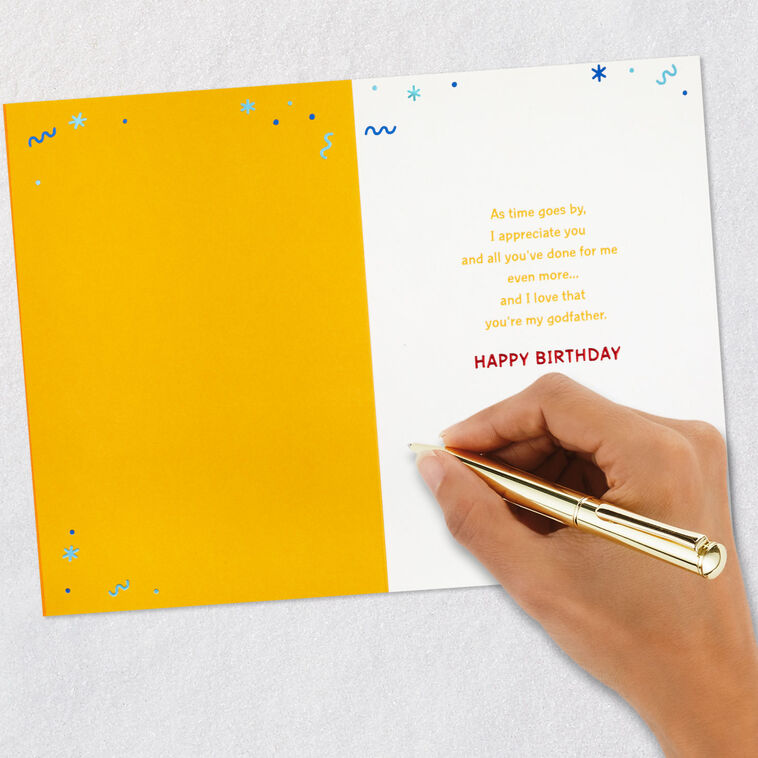 As time goes by,
I appreciate you
and all you've done for me
even more...
and I love that
you're my godfather.
HAPPY BIRTHDAY